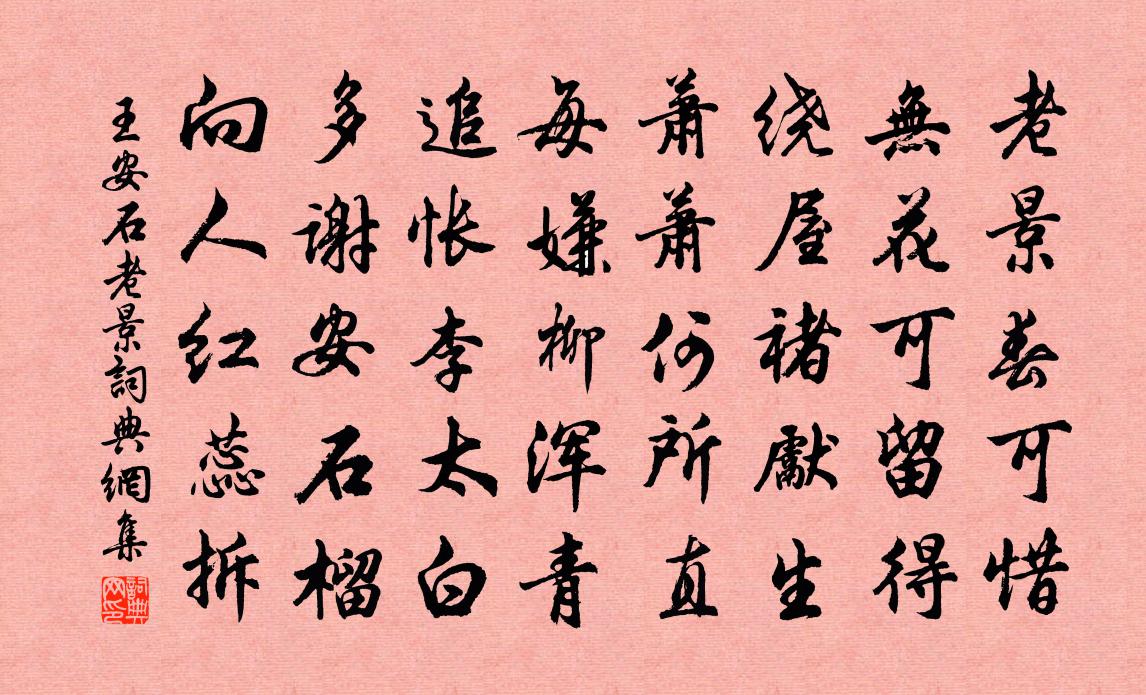 老景春可惜
無花可留得
绕屋褚獻生
蕭蕭何所直
每嫌柳浑青
追怅李太白
多谢安石榴
向人红蕊拆
王安石老景詞典網集
詞典网印